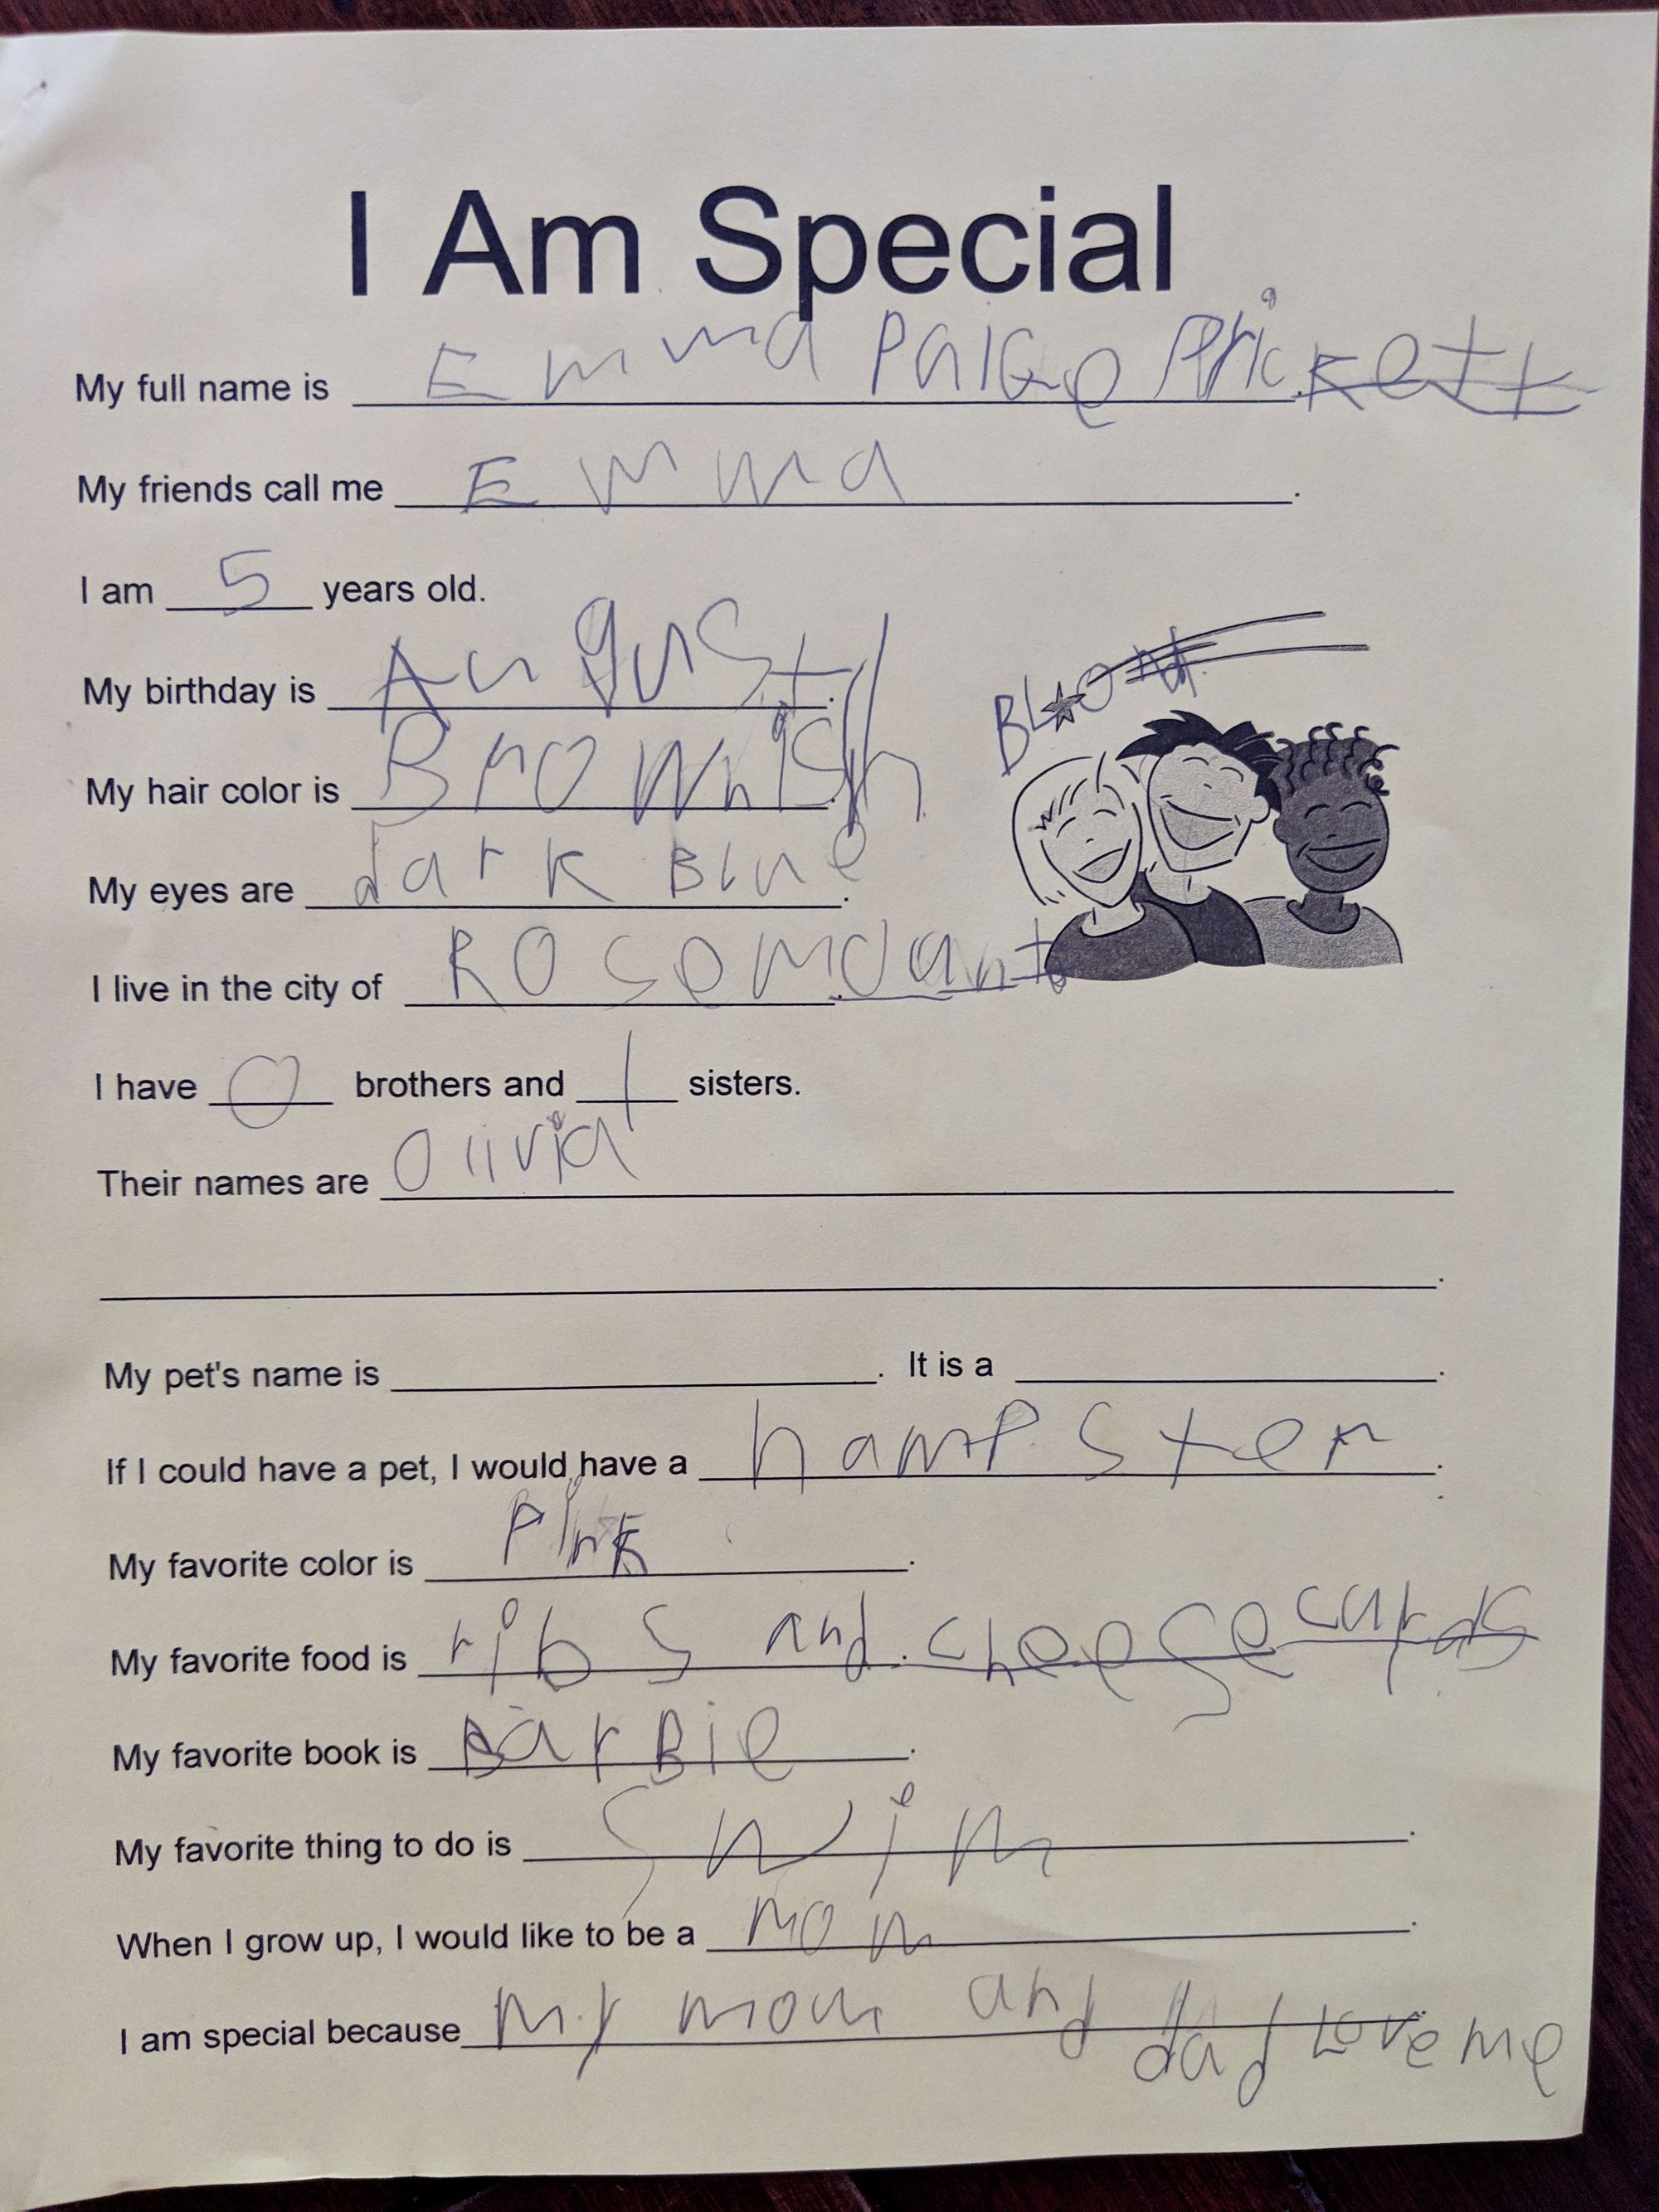 I Am Special
My full name is Emma Paige Prickett.
My friends call me Emma.
I am 5 years old.
My birthday is August.
Blond
My hair color is Brownish.
My eyes are dark Blue.
I live in the city of Rosemoant.
I have 0 brothers and 1 sisters.
Their names are Olivia
My pet's name is . It is a .
If I could have a pet, I would have a hampster.
My favorite color is Pink.
My favorite food is ribs and. cheese curds
My favorite book is BarBie.
My favorite thing to do is Swim.
When I grow up, I would like to be a mom.
I am special because my mom and dad Love me